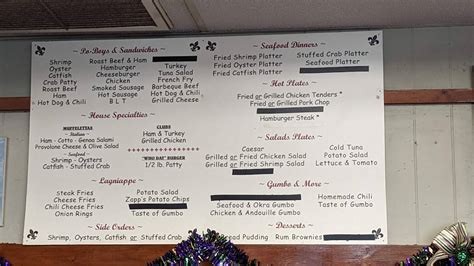 ~ Po-Boys & Sandwiches ~
Shrimp
Oyster
Catfish
Crab Patty
Roast Beef
Ham
Hot Dog & Chili
Roast Beef & Ham
Hamburger
Cheeseburger
Chicken
Smoked Sausage
Hot Sausage
B L T
Turkey
Tuna Salad
French Fry
Barbecue Beef
Hot Dog & Chili
Grilled Cheese
~ House Specialties ~
MUFFELETTAS
~ Italian ~
Ham - Cotto - Genoa Salami
Provolone & Olive Salad
~ Seafood ~
Shrimp - Oysters
Catfish - Stuffed Crab
CLUBS
Ham & Turkey
Grilled Chicken
"WHO DAT" BURGER
1/2 lb. Patty
~ Lagniappe ~
Steak Fries
Cheese Fries
Chili Cheese Fries
Onion Rings
Potato Salad
Zapp's Potato Chips
Taste of Gumbo
~ Side Orders ~
Shrimp, Oysters, Catfish or Stuffed Crab
~ Seafood Dinners ~
Fried Shrimp Platter
Fried Oyster Platter
Fried Catfish Platter
Stuffed Crab Platter
Seafood Platter
~ Hot Plates ~
Fried or Grilled Chicken Tenders *
Fried or Grilled Pork Chop
Hamburger Steak *
~ Salads Plates ~
Caesar
Grilled or Fried Chicken Salad
Grilled or Fried Shrimp Salad
Cold Tuna
Potato Salad
Lettuce & Tomato
~ Gumbo & More ~
Seafood & Okra Gumbo
Chicken & Andouille Gumbo
Homemade Chili
Taste of Gumbo
~ Desserts ~
Bread Pudding - Rum Brownies